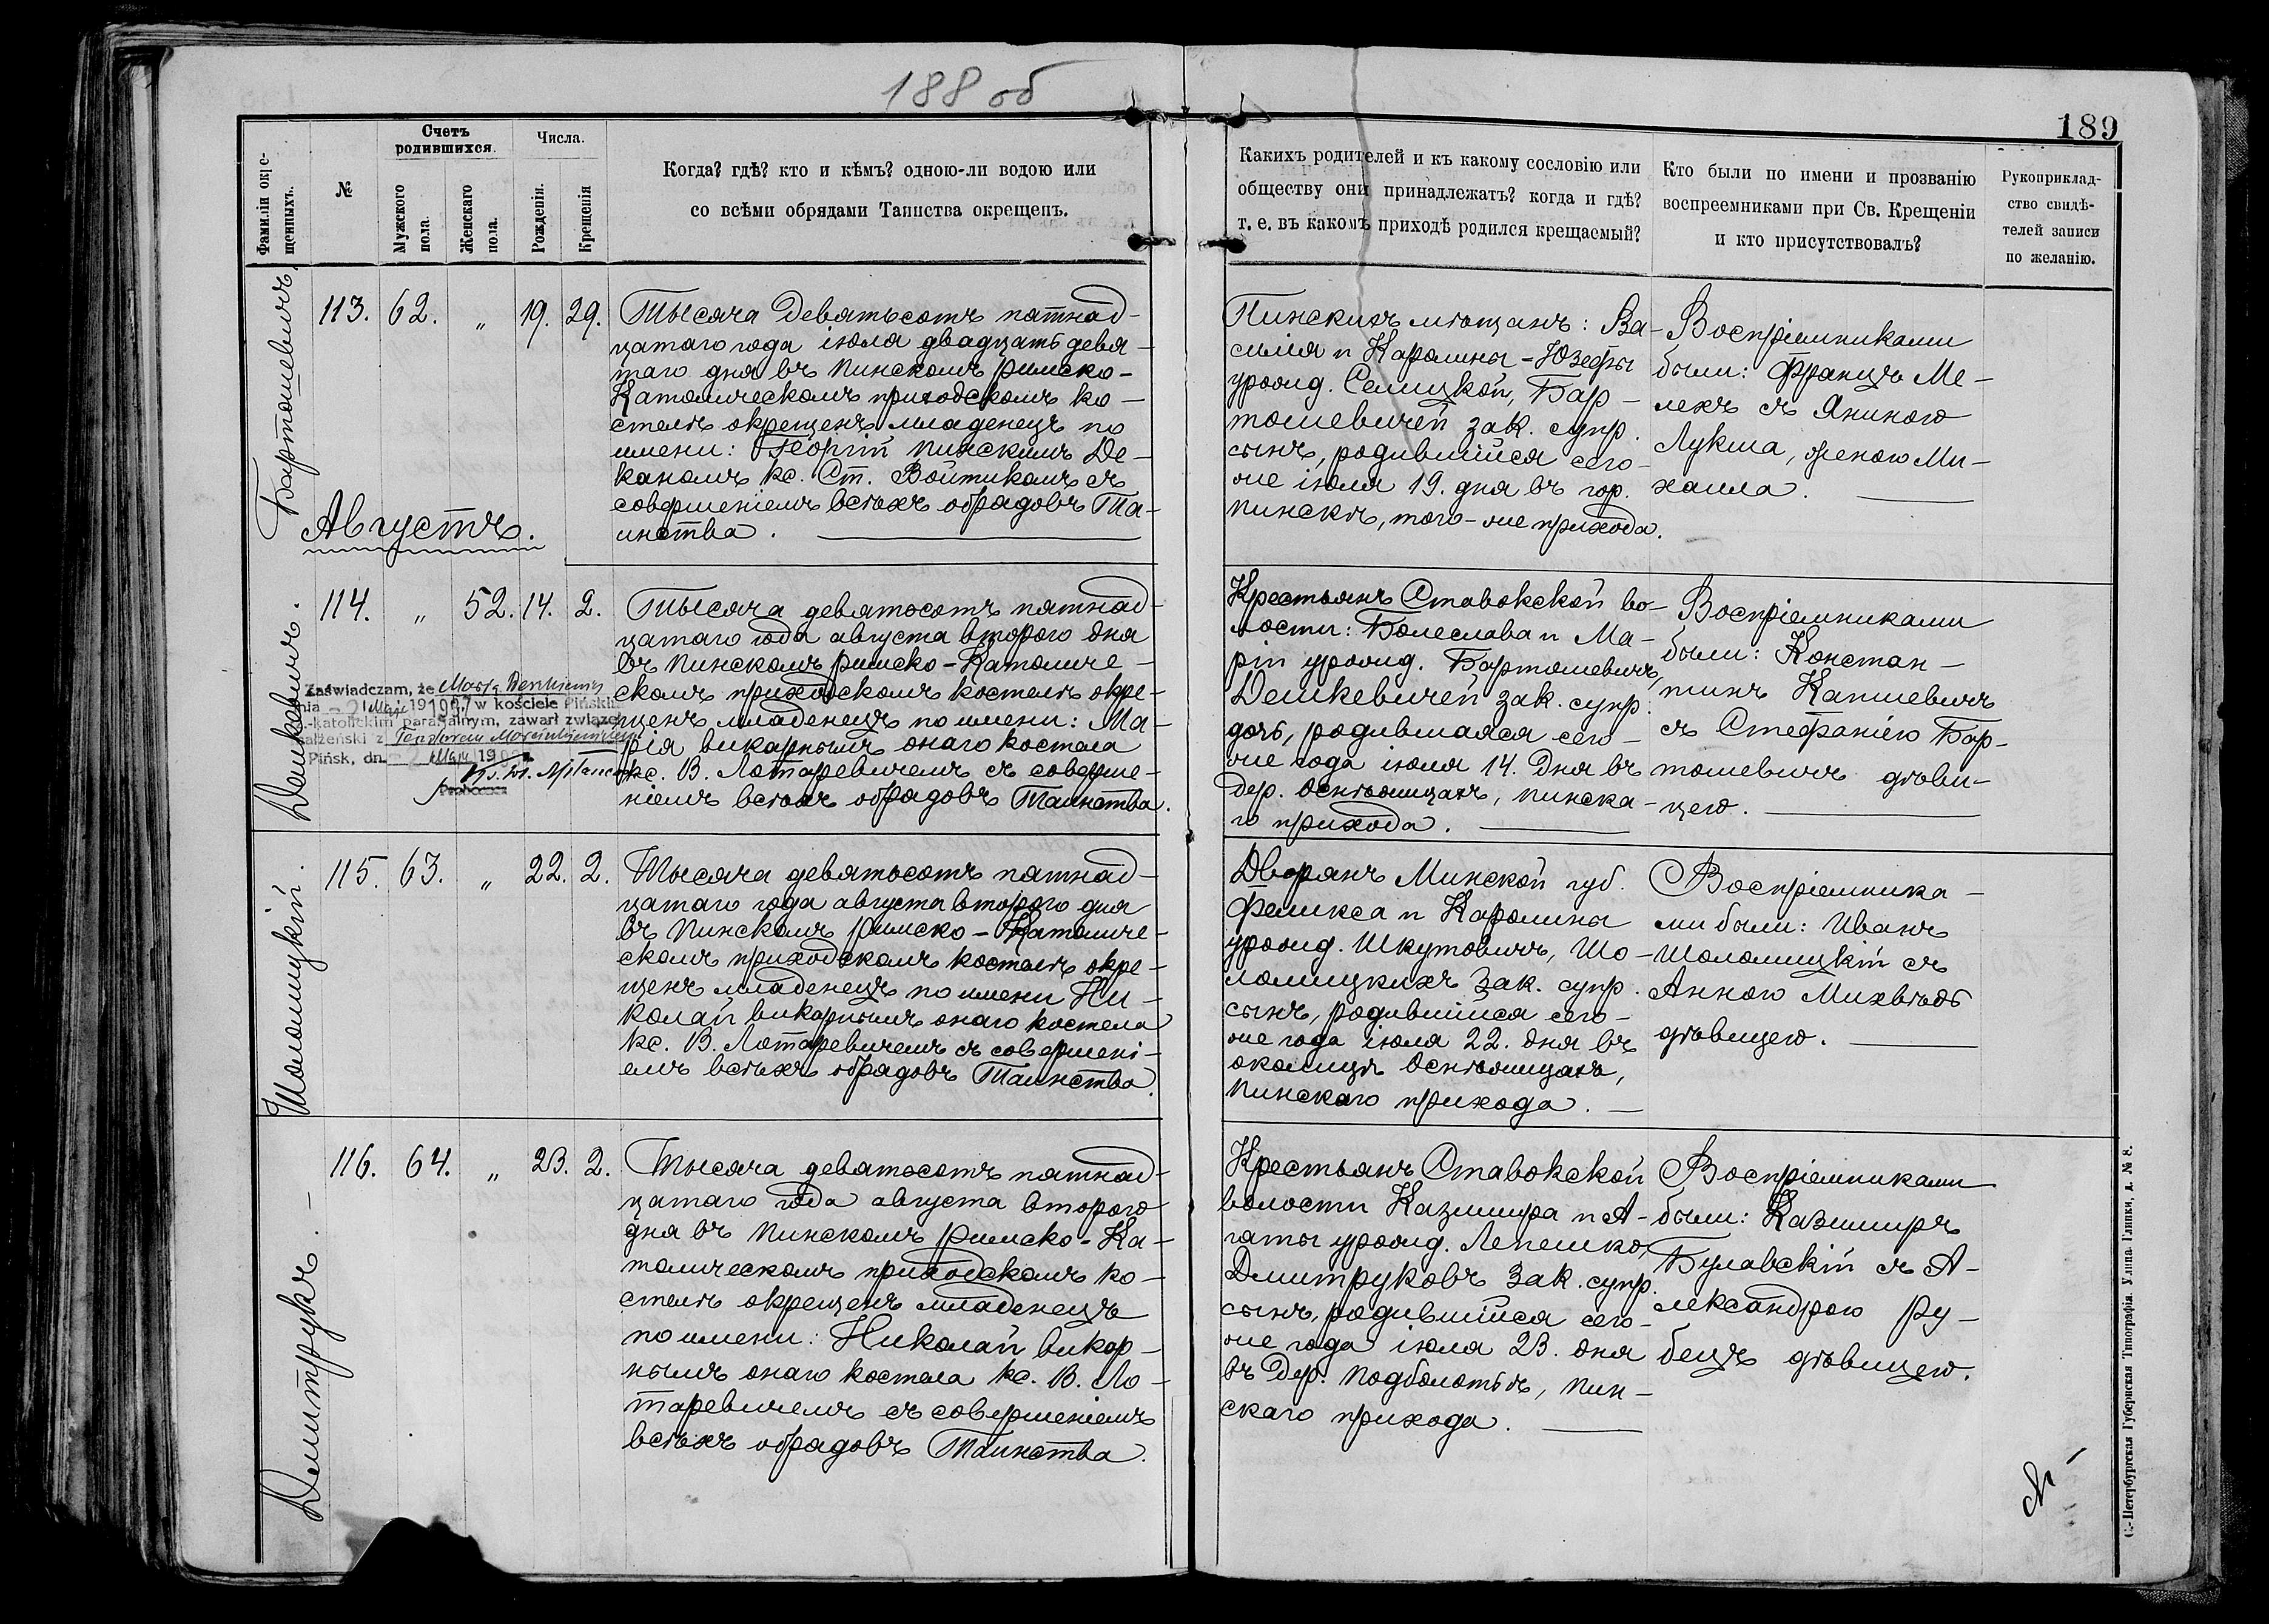 188 об
189
Фамиліи окре-
щенныхъ.
№
Счетъ
родившихся.
Мужскаго
пола.
Женскаго
пола.
Числа.
Рожденія.
Крещенія
Когда? гдѣ? кто и кѣмъ? одною-ли водою или
со всѣми обрядами Таинства окрещенъ.
Какихъ родителей и къ какому сословію или
обществу они принадлежатъ? когда и гдѣ?
т. е. въ какомъ приходѣ родился крещаемый?
Кто были по имени и прозванію
воспреемниками при Св. Крещеніи
и кто присутствовалъ?
Рукоприклад-
ство свидѣ-
телей записи
по желанію.
Бартошевичъ
113. 62. „ 19. 29.
Тысяча девятьсотъ пятнад-
цатаго года іюля двадцать девя-
таго дня въ Пинскомъ римско-
Католическомъ приходскомъ ко-
стелѣ окрещенъ младенецъ по
имени: Георгій Пинскимъ Де-
каномъ кс. Ст. Войтикомъ съ
совершеніемъ всѣхъ обрядовъ Та-
инства.
Пинскихъ мѣщанъ: Ва-
силія и Каролины-Юзефы
урожд. Селицкой, Бар-
тошевичей зак. супр.
сынъ, родившійся сего-
же іюля 19. дня въ гор.
Пинскѣ, того-же прихода.
Воспріемниками
были: Францъ Ме-
лехъ съ Яниною
Лукша, женою Ми-
хаила.
Августъ.
Дешкевичъ.
114. „ 52. 14. 2.
Тысяча девятьсотъ пятнад-
цатаго года августа второго дня
въ Пинскомъ римско-Католиче-
скомъ приходскомъ костелѣ окре-
щенъ младенецъ по имени: Ма-
рія викарнымъ онаго костела
кс. В. Лотаревичемъ съ соверше-
ніемъ всѣхъ обрядовъ Таинства.
Zaświadczam, że Marja
dnia 2 Maja 1937 w kościele Pińskim
rz.-katolickim parafjalnym, zawarł związek
małżeński z Teodorem
Pińsk, dn. Maja 19
Proboszcz
Крестьянъ Ставокской во-
лости: Болеслава и Ма-
ріи урожд. Бартошевичъ,
Дешкевичей зак. супр.
дочь, родившаяся сего-
же года іюля 14. дня въ
дер. Оснѣжицахъ, Пинска-
го прихода.
Воспріемниками
были: Констан-
тинъ Капшевичъ
съ Стефаніею Бар-
тошевичъ дѣви-
цею.
Шоломицкій.
115. 63. „ 22. 2.
Тысяча девятьсотъ пятнад-
цатаго года августа второго дня
въ Пинскомъ Римско-Католиче-
скомъ приходскомъ костелѣ окре-
щенъ младенецъ по имени Ни-
колай викарнымъ онаго костела
кс. В. Лотаревичемъ съ совершені-
емъ всѣхъ обрядовъ Таинства.
Дворянъ Минской губ.
Феликса и Каролины
урожд. Шкутовичъ, Шо-
ломицкихъ зак. супр.
сынъ, родившійся сего-
же года іюля 22. дня въ
околицѣ Оснѣжицахъ,
Пинскаго прихода.
Воспріемника-
ми были: Иванъ
Шоломицкій съ
Анною Михвѣдь
дѣвицею.
Дмитрукъ.
116. 64. „ 23. 2.
Тысяча девятьсотъ пятнад-
цатаго года августа второго
дня въ Пинскомъ римско-Ка-
толическомъ приходскомъ ко-
стелѣ окрещенъ младенецъ
по имени: Николай викар-
нымъ онаго костела кс. В. Ло-
таревичемъ съ совершеніемъ
всѣхъ обрядовъ Таинства.
Крестьянъ Ставокской
волости Казимира и А-
гаты урожд. Лепешко,
Дмитруковъ зак. супр.
сынъ, родившійся сего-
же года іюля 23. дня
въ дер. Подболотьѣ, Пин-
скаго прихода.
Воспріемниками
были: Казимиръ
Булавскій съ А-
лександрою Ру-
бецъ дѣвицею.
С.-Петербургская Губернская Типографія. Улица Глинки, д. № 8.